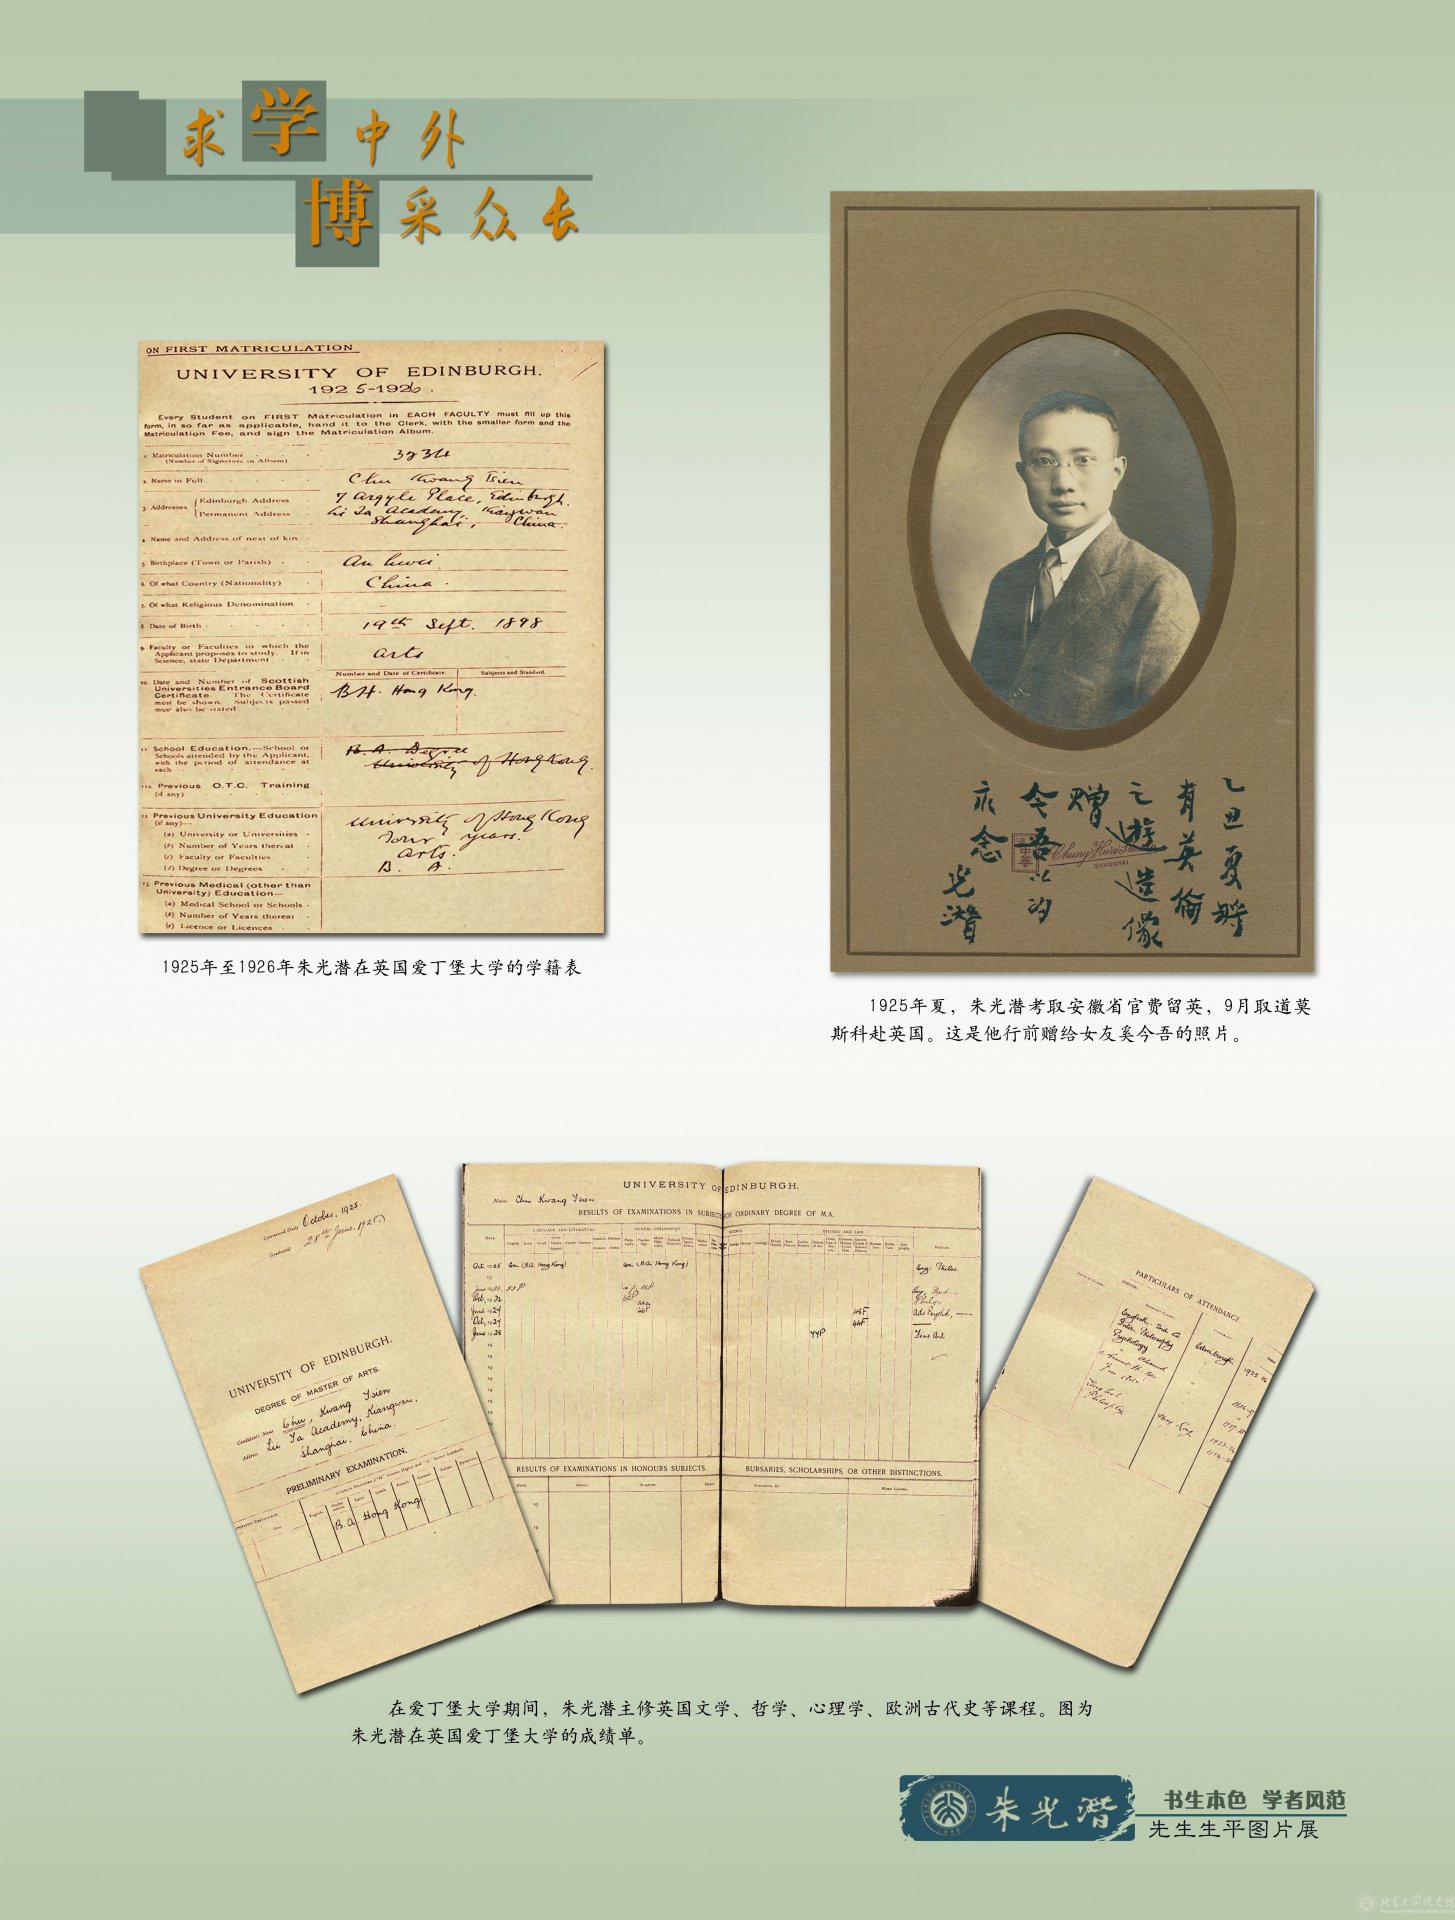 求学中外
博采众长
ON FIRST MATRICULATION
UNIVERSITY OF EDINBURGH.
1925-1926.
Every Student on FIRST Matriculation in EACH FACULTY must fill up this
form, in so far as applicable, hand it to the Clerk, with the smaller form and the
Matriculation Fee, and sign the Matriculation Album.
1. Matriculation Number
(Number of Signature in Album)
3234
2. Name in Full
Chu Kwang Tsien
3. Addresses
Edinburgh Address
7 Argyle Place, Edinburgh.
Permanent Address
Li Ta Academy, Kiangwan
Shanghai, China.
4. Name and Address of next of kin
5. Birthplace (Town or Parish)
An hwei
6. Of what Country (Nationality)
China.
7. Of what Religious Denomination
8. Date of Birth
19th Sept. 1898
9. Faculty or Faculties in which the
Applicant proposes to study. If in
Science, state Department
Arts
Number and Date of Certificate.
Subjects and Standard.
10. Date and Number of Scottish
Universities Entrance Board
Certificate. The Certificate
must be shown. Subjects passed
must also be stated
Hong Kong.
11. School Education.—School or
Schools attended by the Applicant,
with the period of attendance at
each
B.A. Degree
University of Hong Kong.
11a. Previous O.T.C. Training
(if any)
12. Previous University Education
(if any)—
(a) University or Universities
University of Hong Kong
(b) Number of Years thereat
Four years.
(c) Faculty or Faculties
Arts.
(d) Degree or Degrees
B. A.
13. Previous Medical (other than
University) Education—
(a) Medical School or Schools
(b) Number of Years thereat
(c) Licence or Licences
1925年至1926年朱光潜在英国爱丁堡大学的学籍表
乙丑夏将
有英伦
之游造像
赠
令吾以为
永念
光潜
中华
SHANGHAI
1925年夏，朱光潜考取安徽省官费留英，9月取道莫
斯科赴英国。这是他行前赠给女友奚今吾的照片。
October, 1925.
Graduated
UNIVERSITY OF EDINBURGH.
DEGREE OF MASTER OF ARTS.
Candidate's Name Chu, Kwang Tsien
Address Li Ta Academy, Kiangwan,
Shanghai, China.
PRELIMINARY EXAMINATION.
B.A. Hong Kong.
UNIVERSITY OF EDINBURGH.
Name Chu Kwang Tsien
RESULTS OF EXAMINATIONS IN SUBJECTS FOR ORDINARY DEGREE OF M.A.
LANGUAGE AND LITERATURE
MENTAL PHILOSOPHY
HISTORY AND LAW
Oct. 1925 Ex. (B.A. Hong Kong) Ex. (B.A. Hong Kong)
Fine Art
RESULTS OF EXAMINATIONS IN HONOURS SUBJECTS.
BURSARIES, SCHOLARSHIPS, OR OTHER DISTINCTIONS.
PARTICULARS OF ATTENDANCE
Psychology
Edinburgh
1925-26
Hong Kong
在爱丁堡大学期间，朱光潜主修英国文学、哲学、心理学、欧洲古代史等课程。图为
朱光潜在英国爱丁堡大学的成绩单。
朱光潜
书生本色 学者风范
先生生平图片展
北京大学校史馆